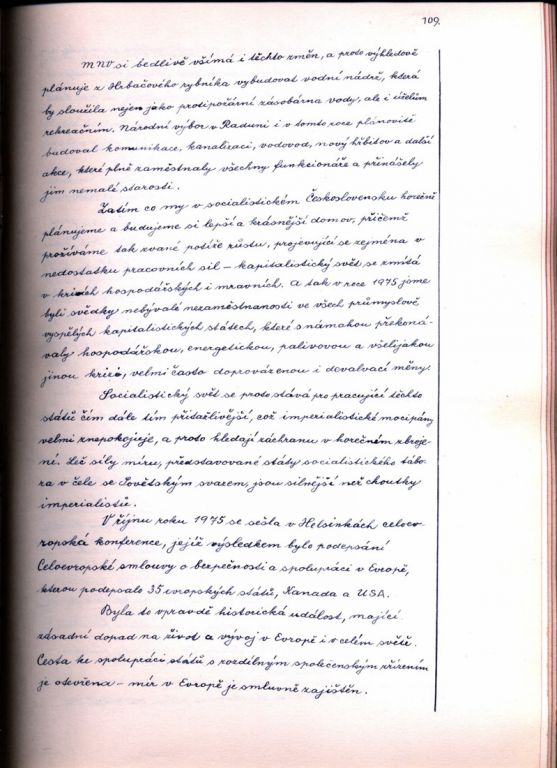 109.
MNV si bedlivě všímá i těchto změn, a proto výhledově
plánuje z Hrbáčového rybníka vybudovat vodní nádrž, která
by sloužila nejen jako protipožární zásobárna vody, ale i účelům
rekreačním. Národní výbor v Raduni i v tomto roce plánovitě
budoval komunikace, kanalizaci, vodovod, nový hřbitov a další
akce, které plně zaměstnaly všechny funkcionáře a přinášely
jim nemalé starosti.
Zatím co my v socialistickém Československu horečně
plánujeme a budujeme si lepší a krásnější domov, přičemž
prožíváme tak zvané potíže růstu, projevující se zejména v
nedostatku pracovních sil – kapitalistický svět se zmítá
v krizích hospodářských i mravních. A tak v roce 1975 jsme
byli svědky nebývalé nezaměstnanosti ve všech průmyslově
vyspělých kapitalistických státech, které s námahou překoná-
valy hospodářskou, energetickou, palivovou a všelijakou
jinou krizi, velmi často doprovázenou i devalvací měny.
Socialistický svět se proto stává pro pracující těchto
států čím dále tím přitažlivější, což imperialistické mocipány
velmi znepokojuje, a proto hledají záchranu v horečném zbroje-
ní. Leč síly míru, představované státy socialistického tábo-
ra v čele se Sovětským svazem, jsou silnější než choutky
imperialistů.
V říjnu roku 1975 se sešla v Helsinkách celoev-
ropská konference, jejíž výsledkem bylo podepsání
Celoevropské smlouvy o bezpečnosti a spolupráci v Evropě,
kterou podepsalo 35 evropských států, Kanada a USA.
Byla to vpravdě historická událost, mající
zásadní dopad na život a vývoj v Evropě i v celém světě.
Cesta ke spolupráci států s rozdílným společenským zřízením
je otevřena – mír v Evropě je smluvně zajištěn.